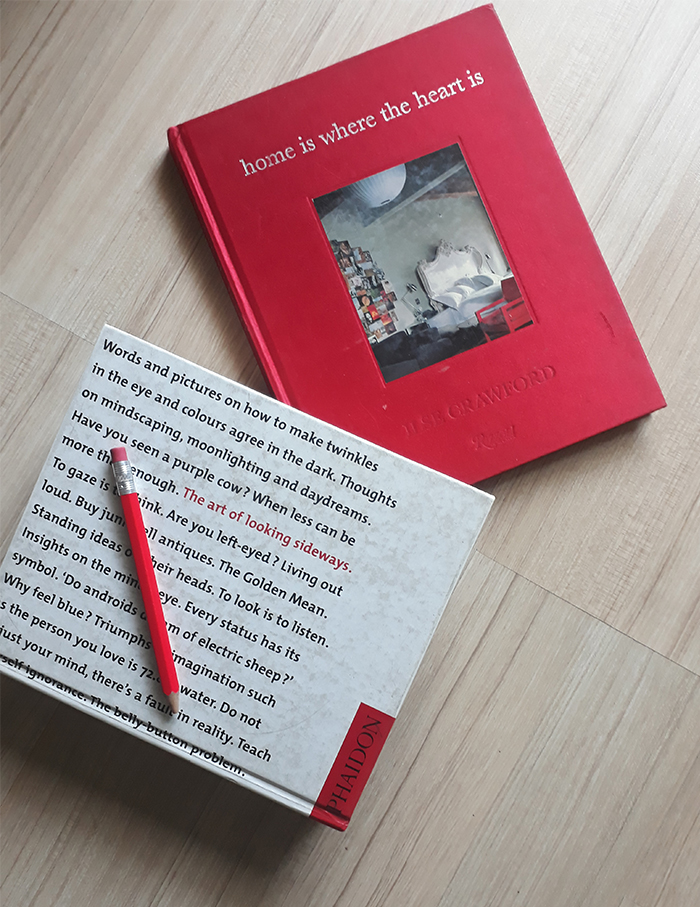 home is where the heart is
ILSE CRAWFORD
Rizzoli
Words and pictures on how to make twinkles
in the eye and colours agree in the dark. Thoughts
on mindscaping, moonlighting and daydreams.
Have you seen a purple cow? When less can be
more enough. The art of looking sideways.
To gaze is Are you left-eyed? Living out
loud. Buy antiques. The Golden Mean.
Standing ideas heads. To look is to listen.
Insights on the eye. Every status has its
symbol. 'Do androids of electric sheep?'
Why feel blue? Triumphs imagination such
the person you love is water. Do not
just your mind, there's a fault in reality. Teach
ignorance. The belly-button problem.
PHAIDON